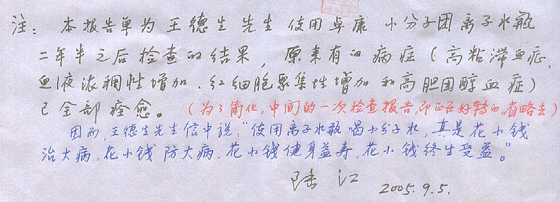 注：本报告单为王德生先生使用卓康小分子团离子水瓶
二年半之后检查的结果，原来有的病症（高粘滞血症、
血液浓稠性增加、红细胞聚集性增加和高胆固醇血症）
已全部痊愈。（为了简化，中间的一次检查报告，即正在好转的，省略去）
因而王德生先生信中说，"使用离子水瓶喝小分子水，真是花小钱
治大病，花小钱防大病，花小钱健身益寿，花小钱终生受益。"
陆江
2005.9.5.